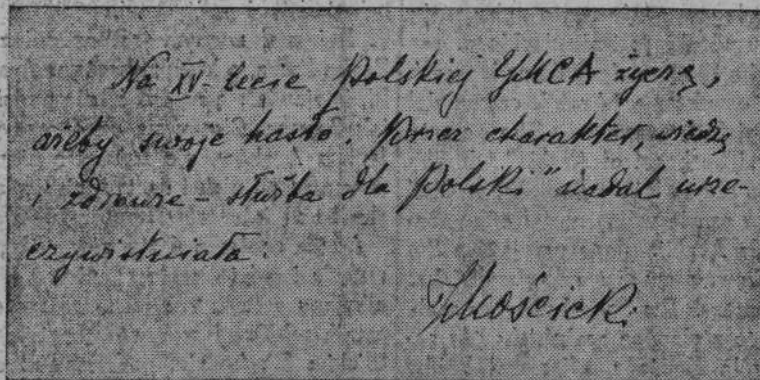 Na XV-lecie Polskiej YMCA życzę,
ażeby swoje hasło „Przez charakter, wiedzę
i zdrowie - służba dla Polski" nadal urze-
czywistniała.
IMościcki